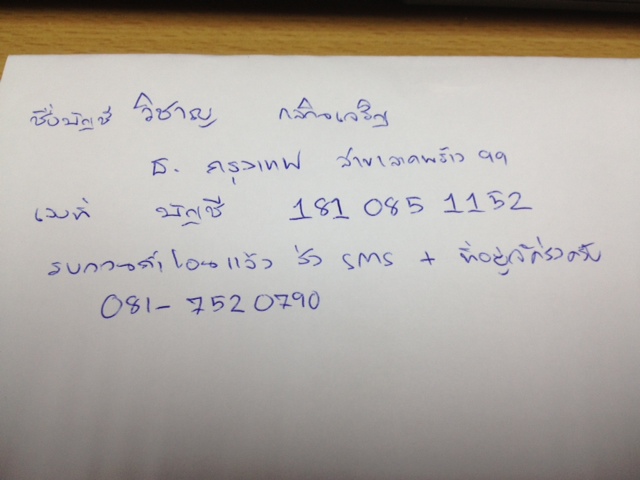 ชื่อบัญชี วิชาญ กลิ่นเจริญ
ธ. กรุงเทพ สาขาลาดพร้าว 99
เลขที่ บัญชี 181 085 1152
รบกวนถ้าโอนแล้ว ส่ง SMS + ที่อยู่ให้ด้วยครับ
081-752 0790